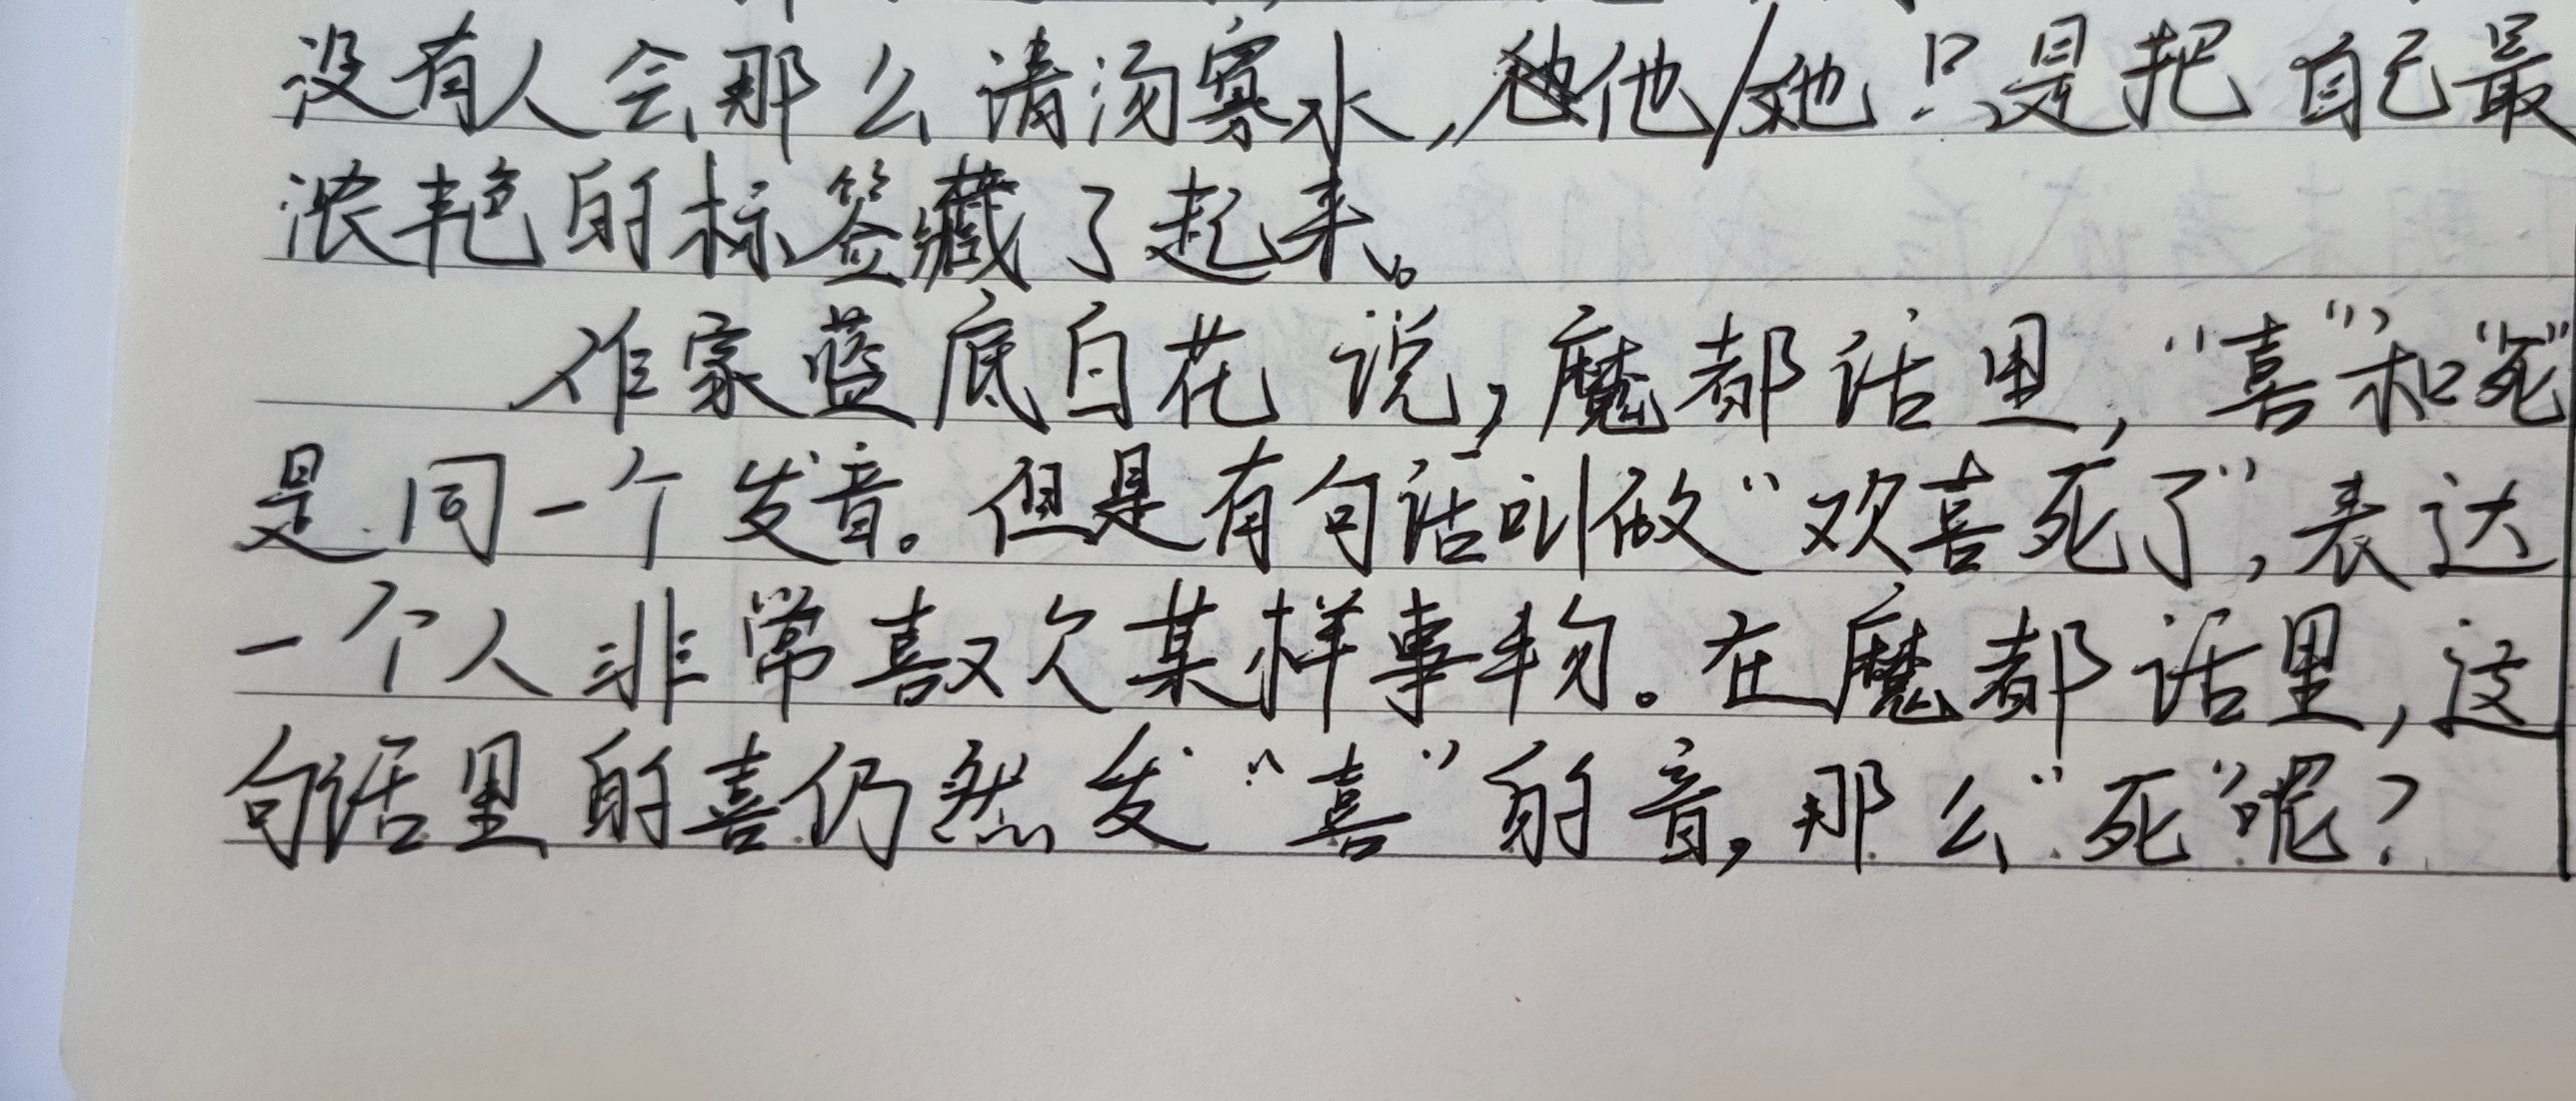 没有人会那么清汤寡水,他/她只是把自己最
浓艳的标签藏了起来。
作家蓝底白花说,魔都话里,“喜”和“死”
是同一个发音。但是有句话叫做“欢喜死了”,表达
一个人非常喜欢某样事物。在魔都话里,这
句话里的喜仍然发“喜”的音,那么“死”呢?